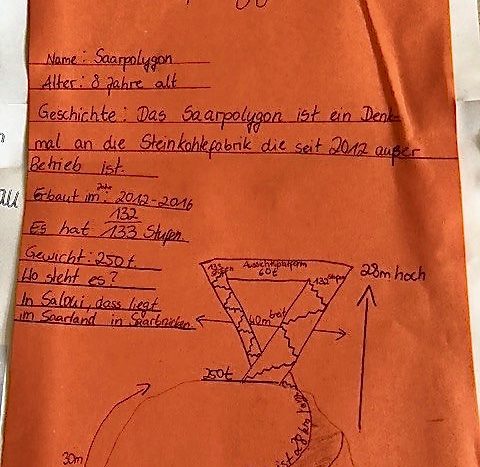 Name: Saarpolygon
Alter: 8 Jahre alt
Geschichte: Das Saarpolygon ist ein Denk-
mal an die Steinkohlefabrik die seit 2012 außer
Betrieb ist.
Erbaut im Jahr: 2012-2016
132
Es hat 133 Stufen
Gewicht: 250t
Wo steht es?
In Saloui, dass liegt
im Saarland in Saarbrücken.
Aussichtsplatform
60t
133 Stufen
132 Stufen
28m hoch
40m
breit
250t
30m